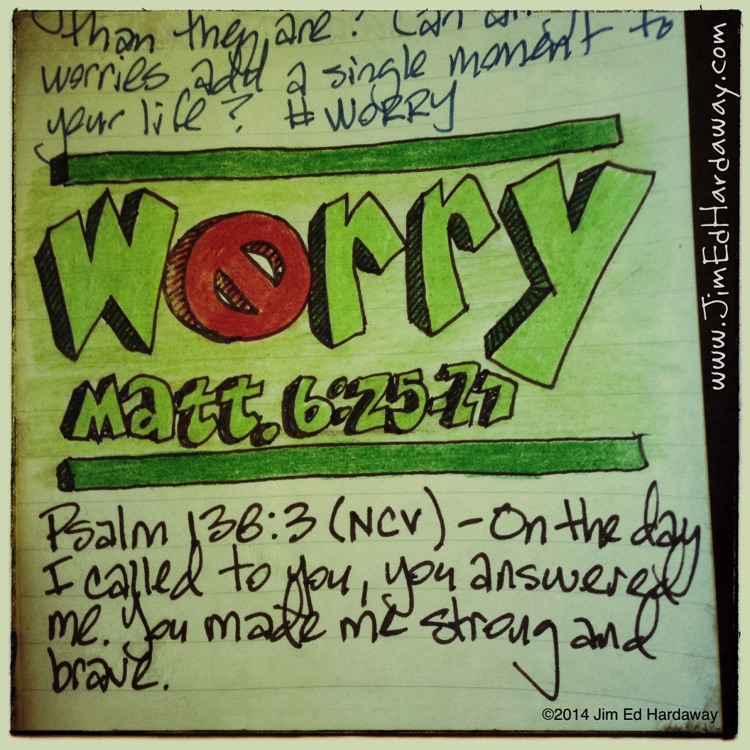 than they are? Can all
worries add a single moment to
your life? #WORRY
Worry
Matt. 6:25-27
Psalm 138:3 (NCV) - On the day
I called to you, you answered
me. You made me strong and
brave.
www.JimEdHardaway.com
©2014 Jim Ed Hardaway